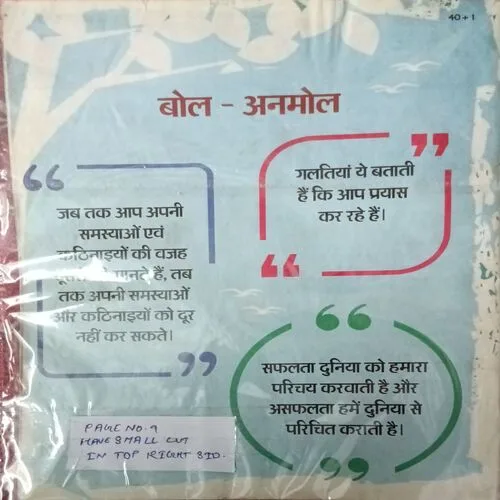 40+1
बोल - अनमोल
जब तक आप अपनी
समस्याओं एवं
कठिनाइयों की वजह
दूसरों को मानते हैं, तब
तक अपनी समस्याओं
और कठिनाइयों को दूर
नहीं कर सकते।
गलतियां ये बताती
हैं कि आप प्रयास
कर रहे हैं।
सफलता दुनिया को हमारा
परिचय करवाती है और
असफलता हमें दुनिया से
परिचित कराती है।
PAGE NO. 9
HAVE SMALL CUT
IN TOP RIGHT SID.